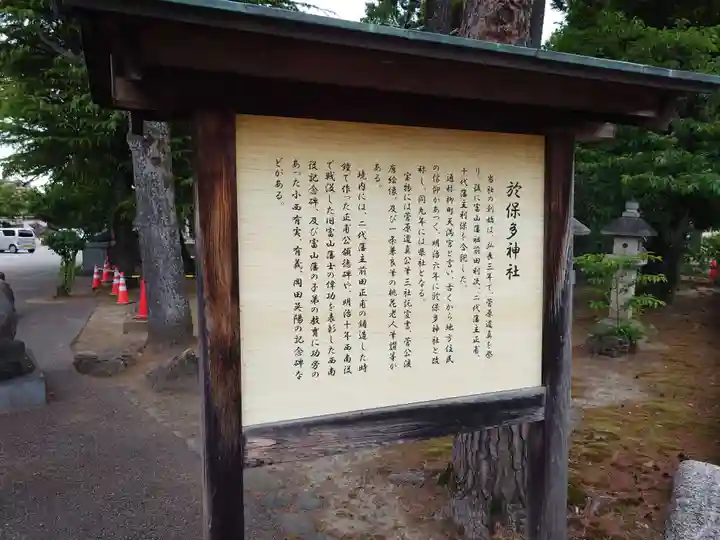 於保多神社
当社の創始は、弘長三年で、菅原道真を祭
り、後に富山藩祖前田利次、二代藩主正甫、
十代藩主利保を合祀した。
通称柳町天満宮と言い、古くから地方住民
の信仰があつく、明治六年に於保多神社と改
称し、同九年には県社となる。
宝物には菅原道真公筆三社託宣書、菅公渡
唐絵像、及び一条兼良筆の桃花老人筆讃等が
ある。
境内には、二代藩主前田正甫の鋳造した時
鐘で作った正甫公頌徳碑や、明治十年西南役
で戦没した旧富山藩士の偉功を表彰した西南
役記念碑、及び富山藩の子弟の教育に功労の
あった小西有実、有義、岡田英陽の記念碑な
どがある。